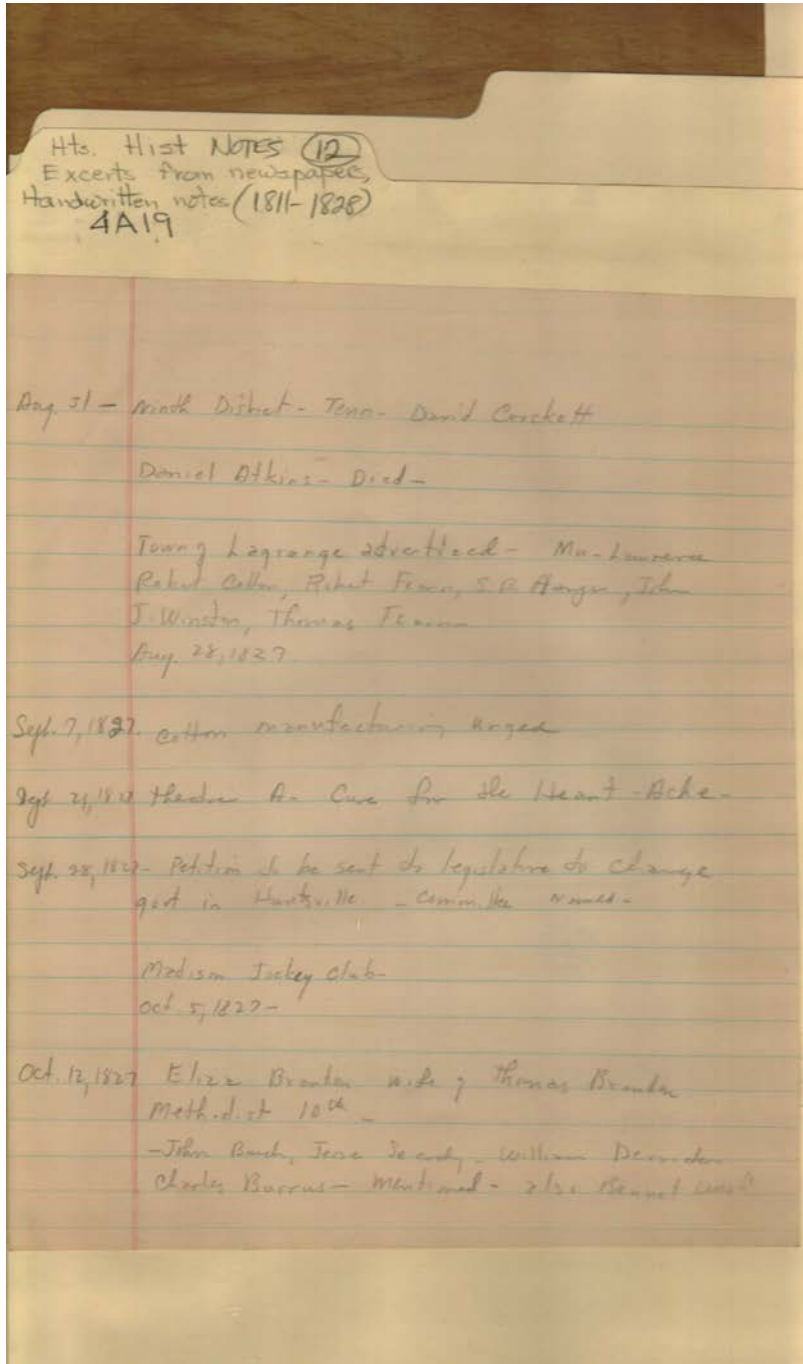 Hts. Hist NOTES 12
Excerts from newspapers,
Handwritten notes (1811-1828)
4A19
Aug. 31 - Ninth District - Tenn - David Crockett
Daniel Atkins - Died -
Town of Lagrange advertised - Mr. Lawrence
Robert Fearn, John
J. Winston, Thomas Fearn
Aug. 28, 1827
Sept. 7, 1827. Cotton manufacturing urged
Sept 21, 1827 theatre A - Cure for the Heart - Ache -
Sept. 28, 1827 - Petition to be sent to legislature to change
govt in Huntsville - Committee Named -
Madison Jockey Club -
Oct. 5, 1827 -
Oct. 12, 1827 Eliza Brandon wife of Thomas Brandon
Methodist 10th -
- John Jesse William
Charles Burrus - Mentioned - also Bennet